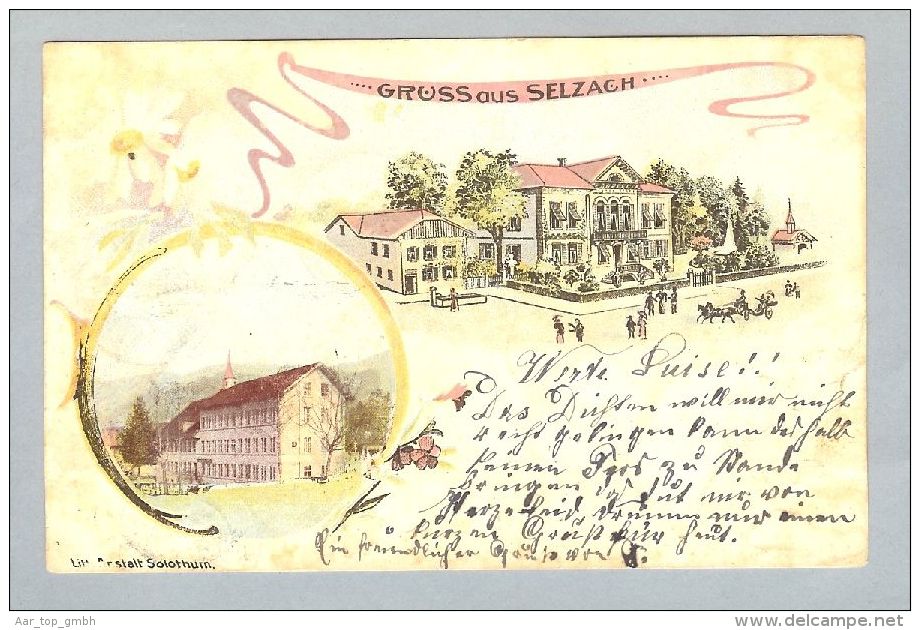 .... GRUSS aus SELZACH ....
Werte Luise!!
Das Dichten will mir nicht
recht gelingen kann deshalb
keinen Fers zu Stande
bringen es tut mir von
Herzen leid drumm nur einen
kurzen Gruß für heut.
Ein freundlicher Gruß von
Anstalt Solothurn.
Aar_top_gmbh
www.delcampe.net